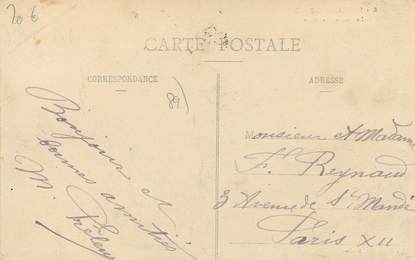 20 €
CARTE POSTALE
CORRESPONDANCE
ADRESSE
89
Bonjour et
bonnes amitiés
M.
Monsieur et Madame
F. Reynaud
3 Avenue de St Mandé
Paris XII